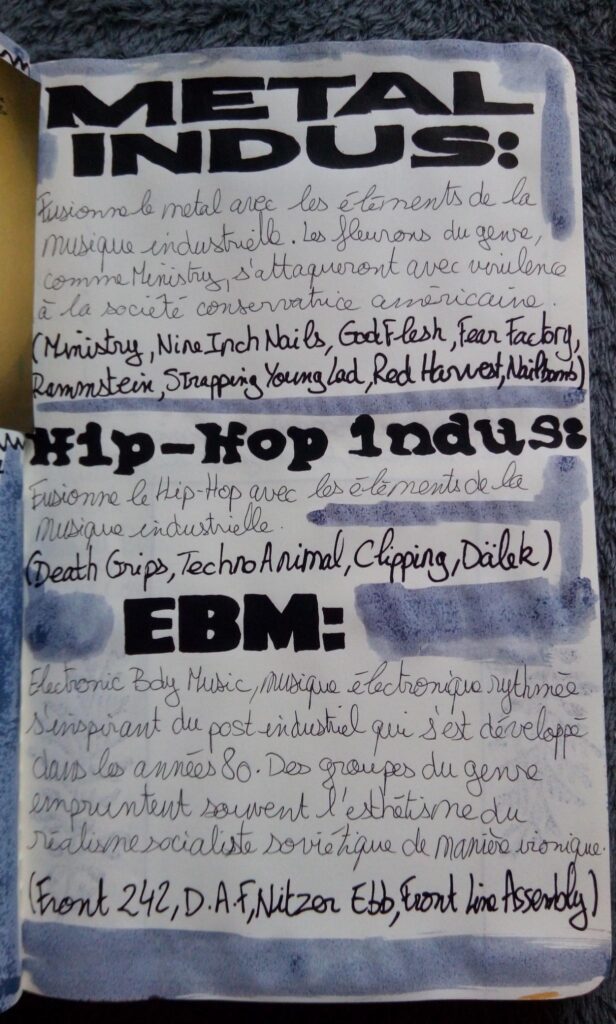 METAL
INDUS:
Fusionne le metal avec les éléments de la
musique industrielle. Les fleurons du genre,
comme Ministry, s'attaqueront avec virulence
à la société conservatrice américaine.
(Ministry, Nine Inch Nails, GodFlesh, Fear Factory,
Rammstein, Strapping Young Lad, Red Harvest, Nailbomb)
Hip-Hop indus:
Fusionne le Hip-Hop avec les éléments de la
musique industrielle.
(Death Grips, Techno Animal, Clipping, Dälek)
EBM:
Electronic Body Music, musique électronique rythmée
s'inspirant du post industriel qui s'est développé
dans les années 80. Des groupes du genre
empruntent souvent l'esthétisme du
réalisme socialiste soviétique de manière ironique.
(Front 242, D.A.F, Nitzer Ebb, Front Line Assembly)